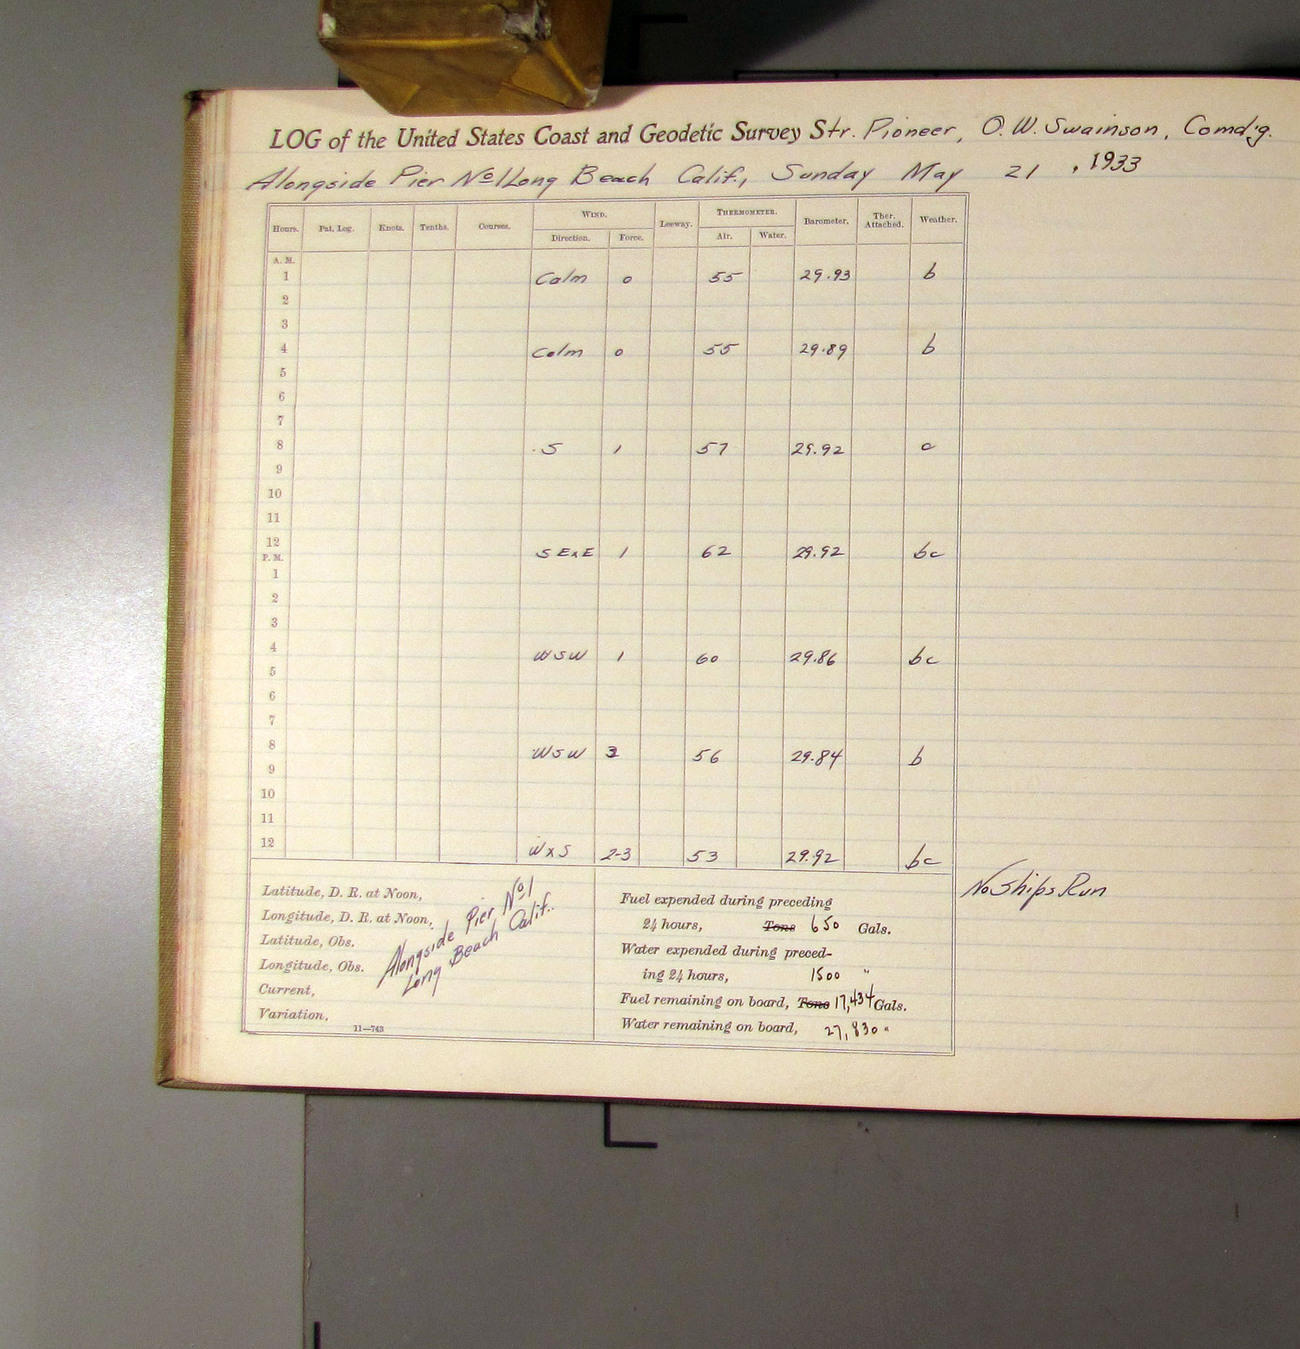 LOG of the United States Coast and Geodetic Survey Str. Pioneer, O. W. Swainson, Comd'g.
Alongside Pier No 1 Long Beach Calif., Sunday May 21, 1933
Hours. Pat. Log. Knots. Tenths. Courses. WIND. Direction. Force. Leeway. THERMOMETER. Air. Water. Barometer. Ther. Attached. Weather.
A. M.
1 Calm 0 55 29.93 b
2
3
4 Calm 0 55 29.89 b
5
6
7
8 S 1 57 29.92 c
9
10
11
12 SExE 1 62 29.92 bc
P. M.
1
2
3
4 WSW 1 60 29.86 bc
5
6
7
8 WSW 3 56 29.84 b
9
10
11
12 WxS 2-3 53 29.92 bc
No Ships Run
Latitude, D. R. at Noon,
Longitude, D. R. at Noon,
Latitude, Obs.
Longitude, Obs.
Current,
Variation,
Alongside Pier No 1
Long Beach Calif.
11—743
Fuel expended during preceding
24 hours, Tons 650 Gals.
Water expended during preced-
ing 24 hours, 1500 "
Fuel remaining on board, Tons 17,434 Gals.
Water remaining on board, 27,830 "